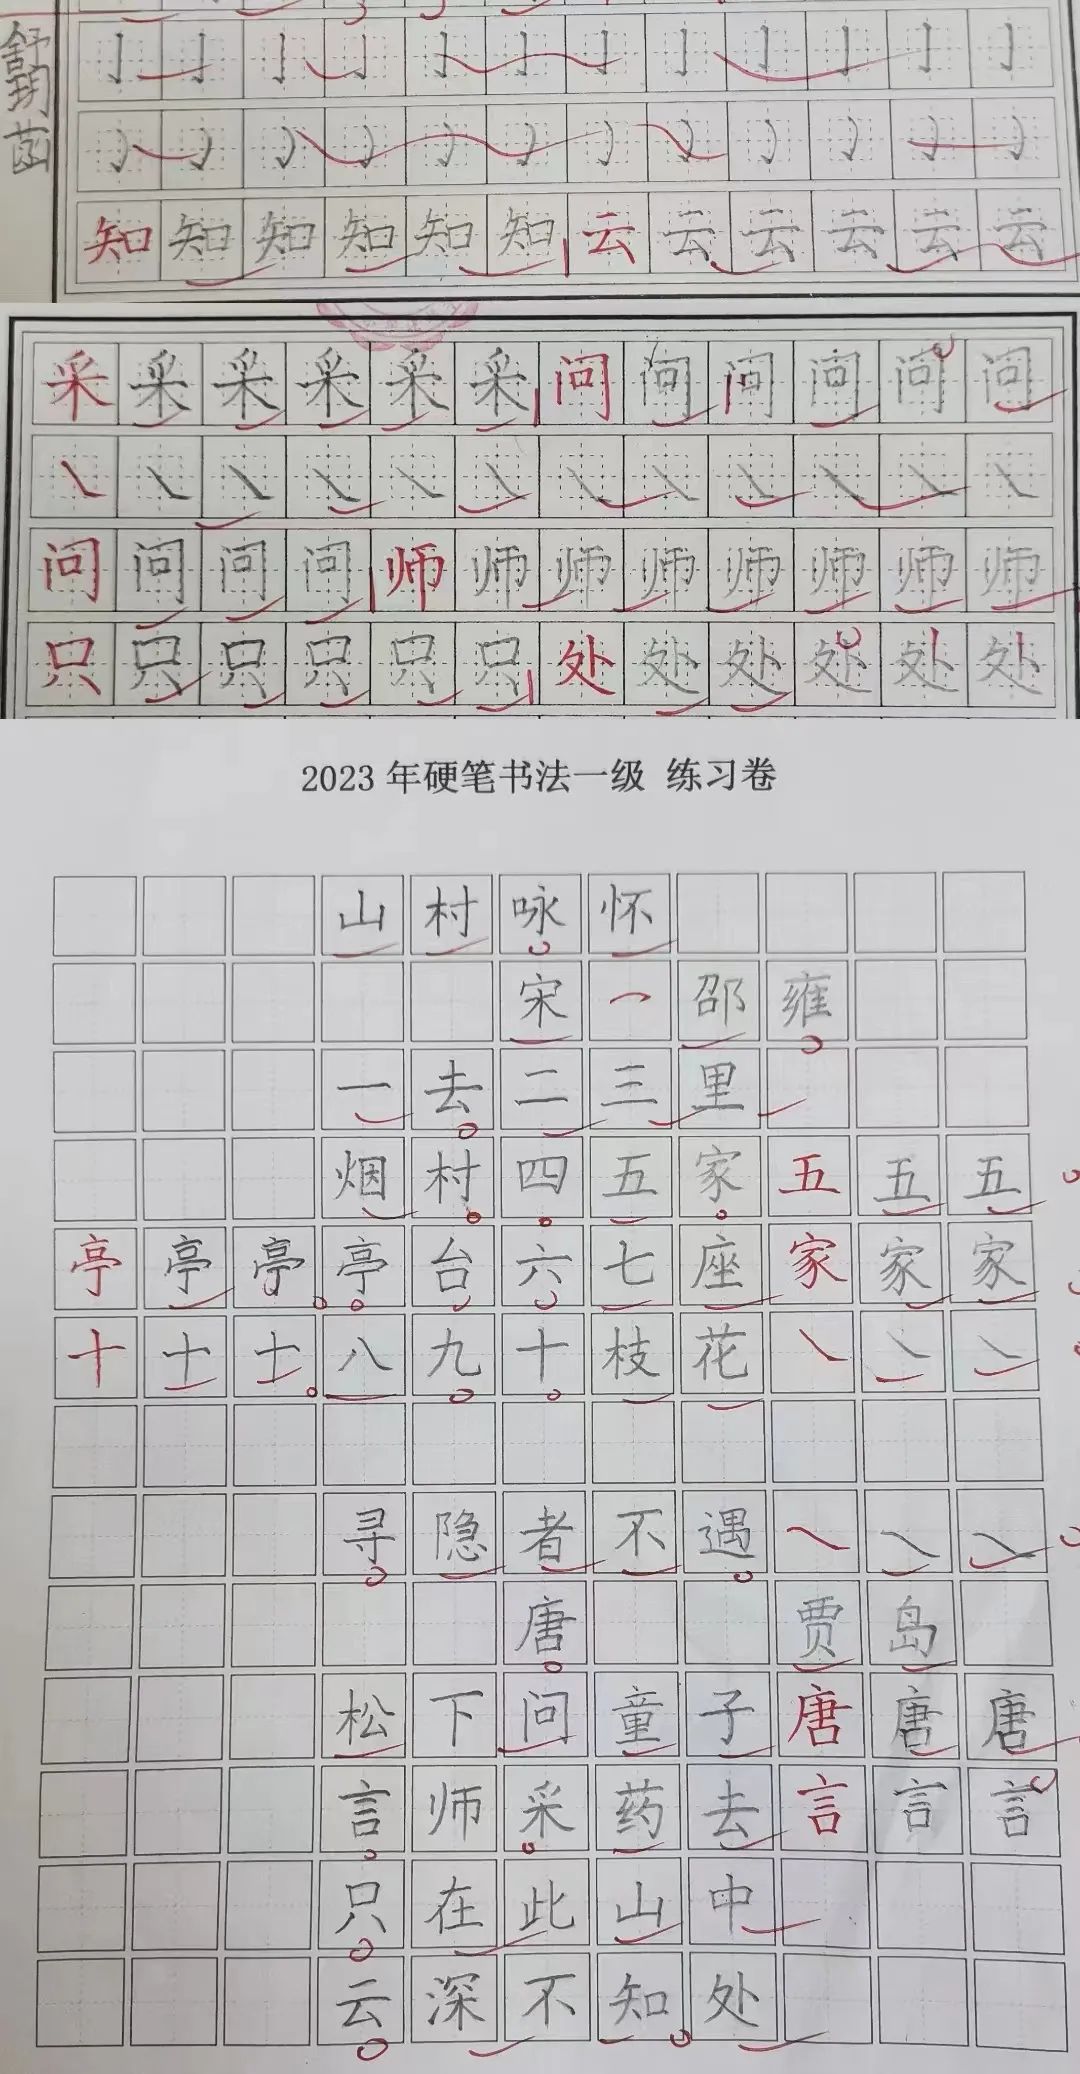 舒玥菡
知知知知知知云云云云云云
采采采采采采问问问问问问
问问问问师师师师师师师师
只只只只只只处处处处处处
2023年硬笔书法一级 练习卷
山村咏怀
宋 邵雍
一去二三里
烟村四五家五五五
亭亭亭亭台六七座家家家
十十十八九十枝花
寻隐者不遇
唐 贾岛
松下问童子唐唐唐
言师采药去言言言
只在此山中
云深不知处